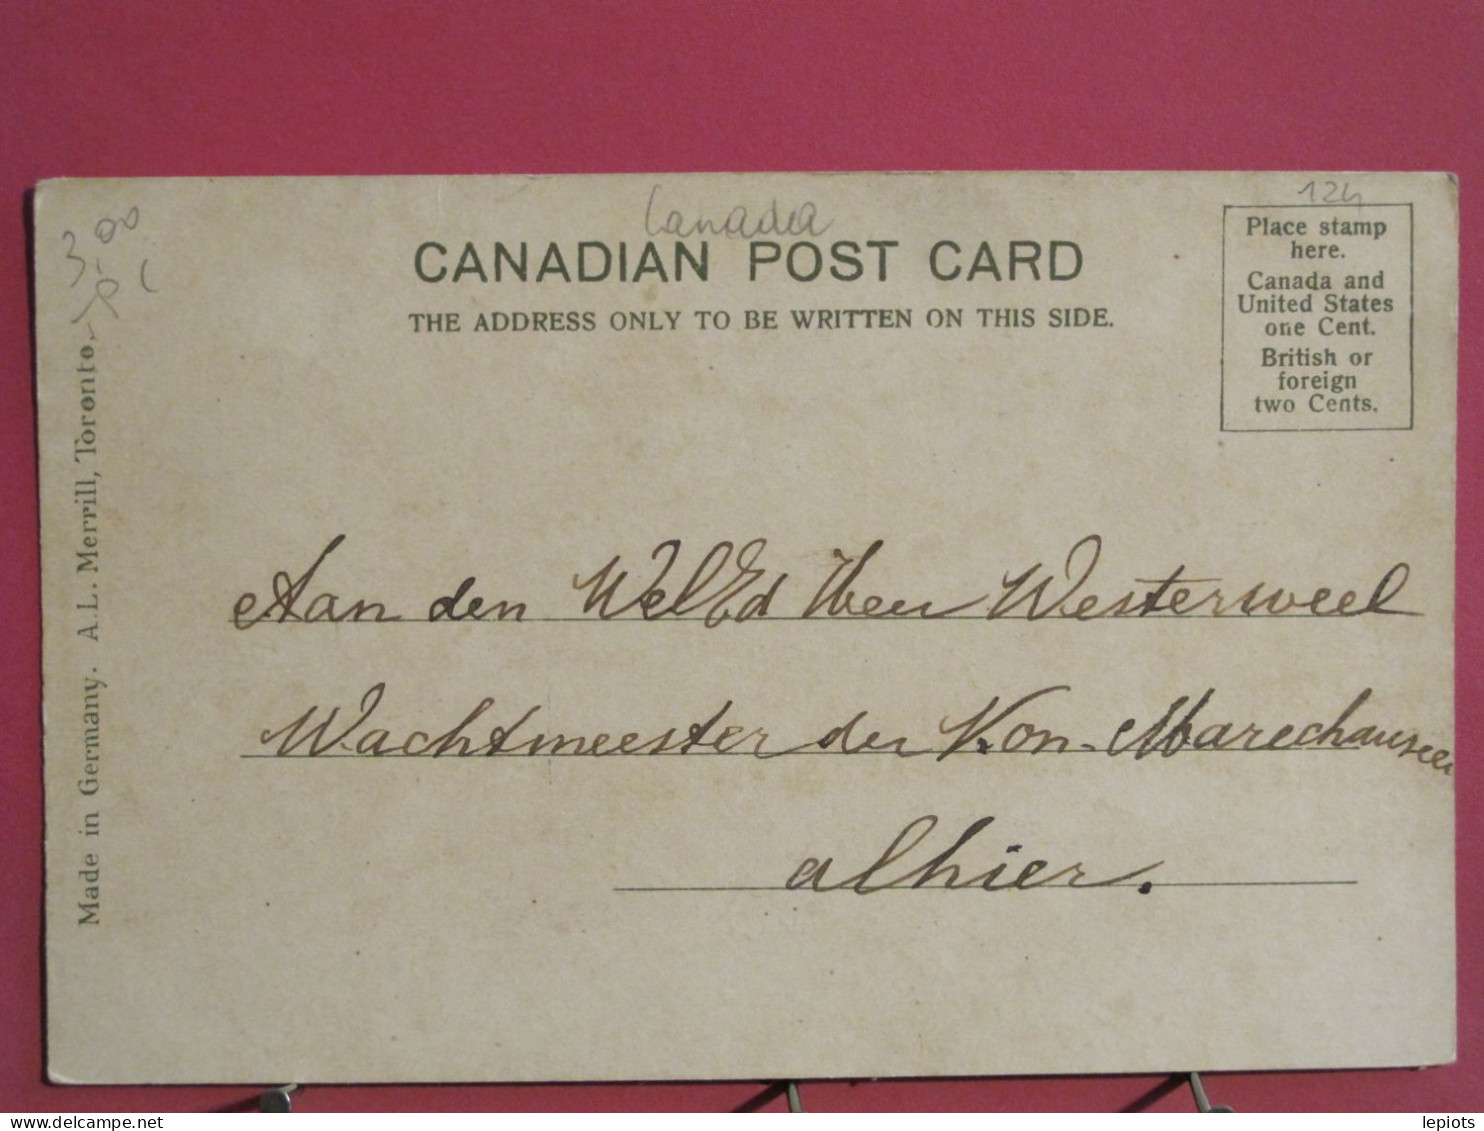 3,00
Canada
124
CANADIAN POST CARD
THE ADDRESS ONLY TO BE WRITTEN ON THIS SIDE.
Place stamp
here.
Canada and
United States
one Cent.
British or
foreign
two Cents.
Made in Germany. A.L. Merrill, Toronto.
Aan den WelEd Heer Westerweel
Wachtmeester der Kon. Marechaussee
alhier.
delcampe.net
lepiots